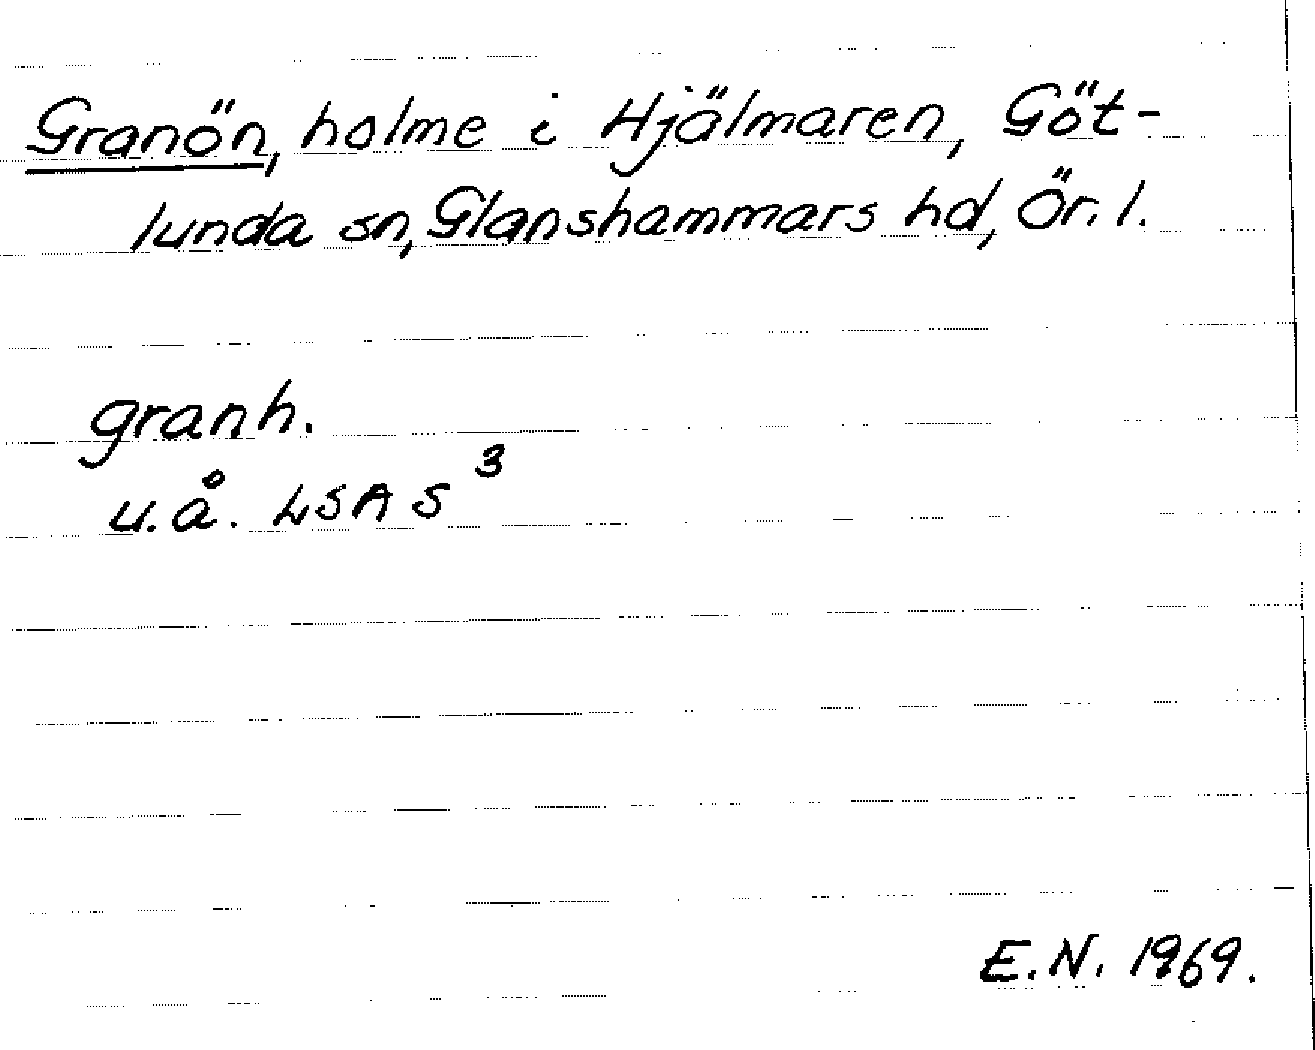 Granön, holme i Hjälmaren, Göt-
lunda sn, Glanshammars hd, Ör. l.
granh.
u.å. LSA S 3
E.N. 1969.